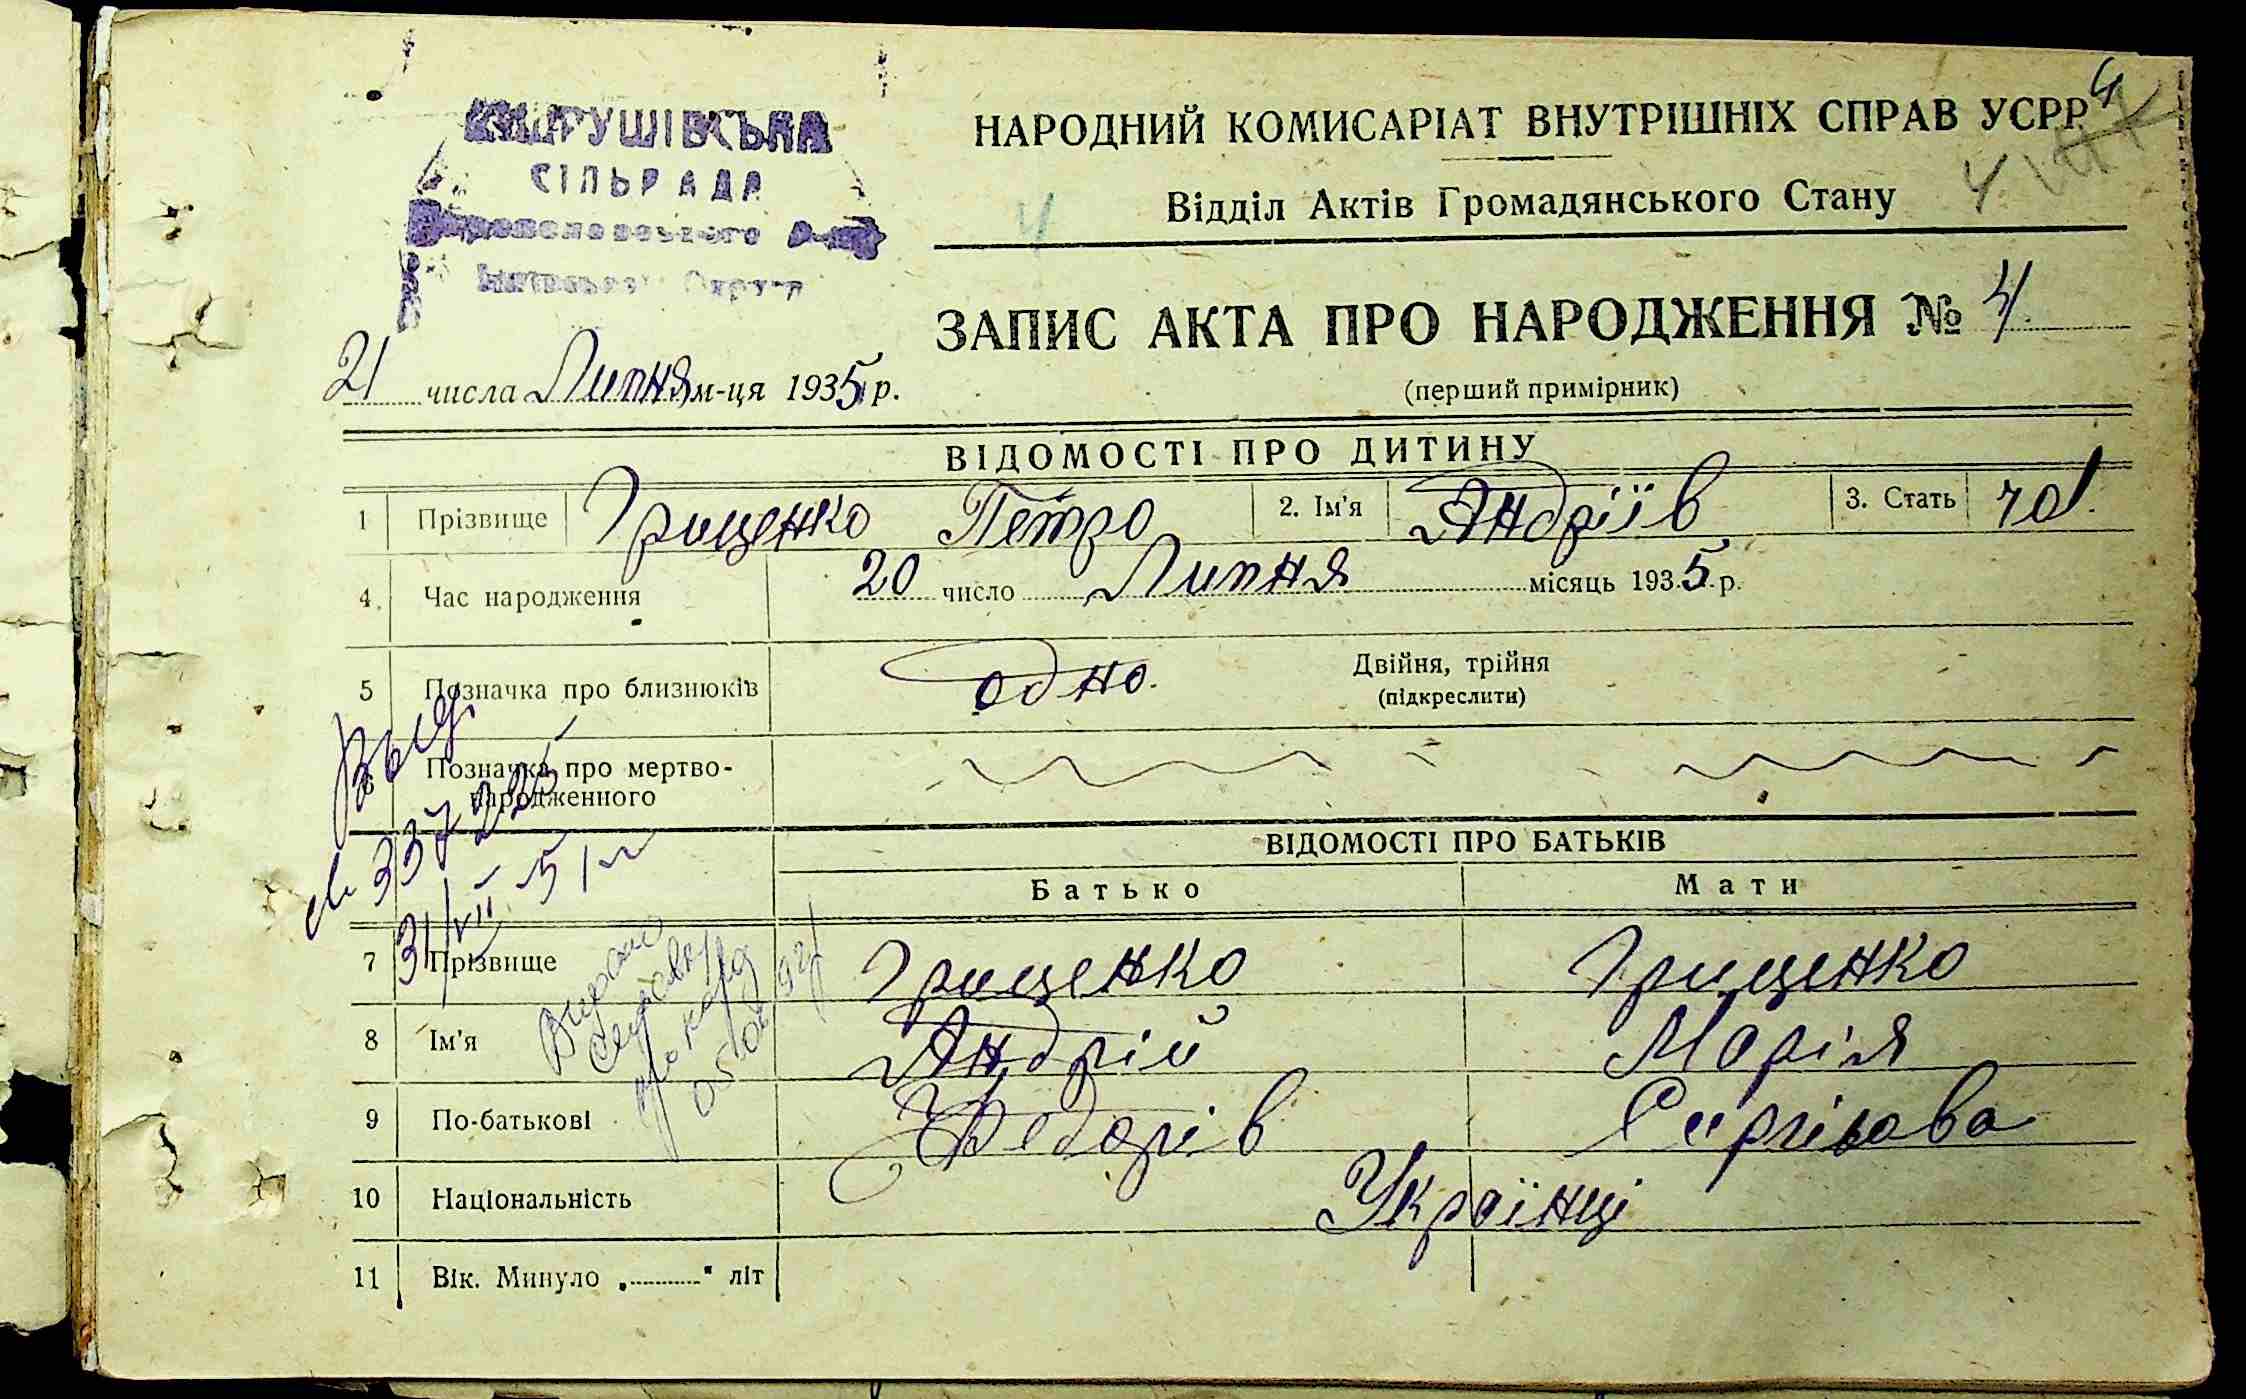 СІЛЬРАДА
НАРОДНИЙ КОМИСАРІАТ ВНУТРІШНІХ СПРАВ УСРР
4
4
4
Відділ Актів Громадянського Стану
ЗАПИС АКТА ПРО НАРОДЖЕННЯ № 4.
21 числа Липня м-ця 1935 р.
(перший примірник)
ВІДОМОСТІ ПРО ДИТИНУ
1 Прізвище Грищенко Петро 2. Ім'я Андріїв 3. Стать чол.
4. Час народження 20 число Липня місяць 1935 р.
5 Позначка про близнюків одно. Двійня, трійня
(підкреслити)
6 Позначка про мертво-
народженного
Выд.
337225
31/VII 51 г
ВІДОМОСТІ ПРО БАТЬКІВ
Батько Мати
7 Прізвище Грищенко Грищенко
8 Ім'я Андрій Марія
9 По-батькові Федорів Сергієва
10 Національність Українці
11 Вік. Минуло „ “ літ